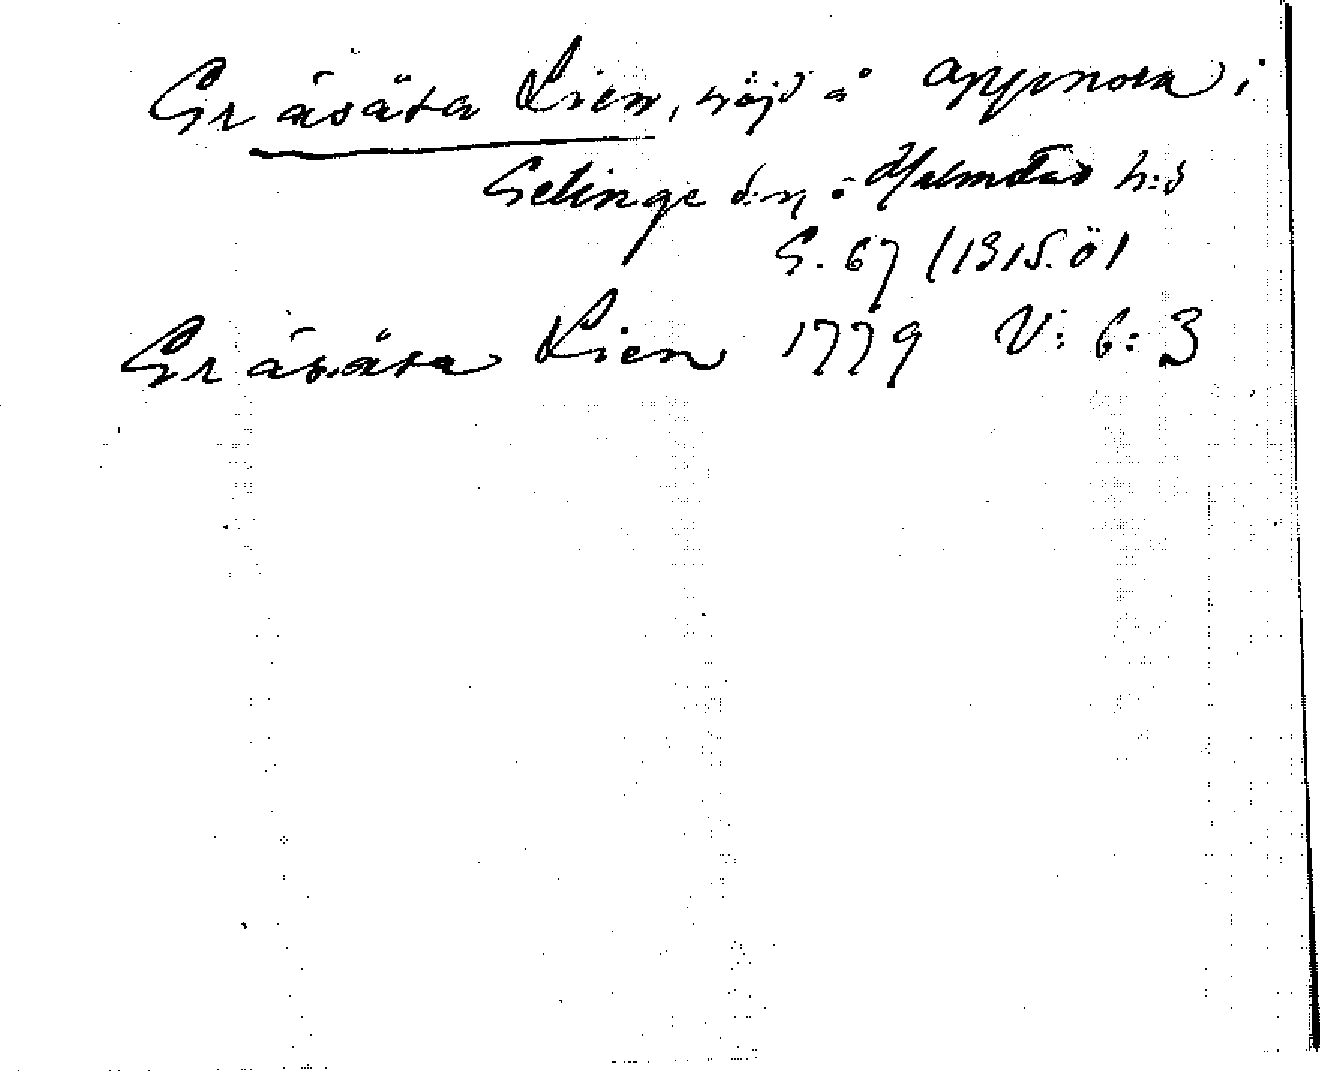 Gräsäta Lien, höjd å Appenora i
Getinge s:n i Halmstad h:d
S. 67 (1315.Ö)
Gräsäta Lien 1779 V: 6: 3